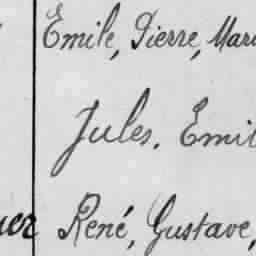 Emile, Pierre, Mari
Jules. Emil
uer René, Gustave,